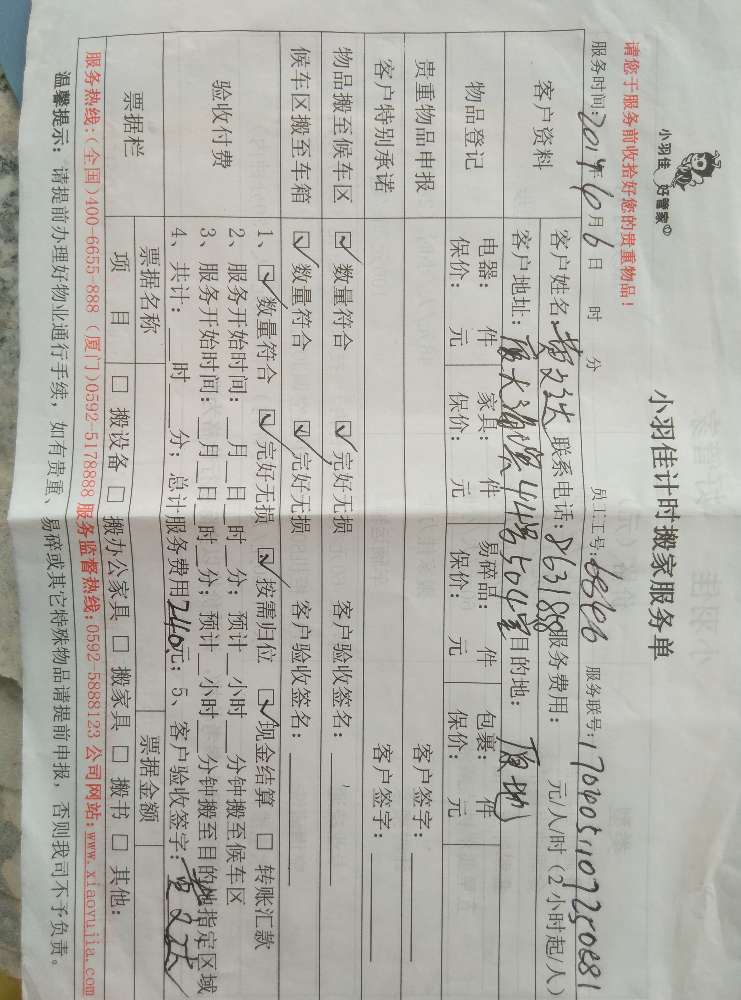 小羽佳 好管家
小羽佳计时搬家服务单
请您于服务前收拾好您的贵重物品！
服务时间: 2017年6月6日 时 分 员工工号: 服务联号: 1706051107250881
客户资料
客户姓名: 联系电话: 863188 服务费用: 元/人/时（2小时起/人）
客户地址: 44号504室 目的地: 原地
物品登记
电器: 件 家具: 件 易碎品: 件 包裹: 件
保价: 元 保价: 元 保价: 元 保价: 元
贵重物品申报 客户签字:
客户特别承诺 客户签字:
物品搬至候车区 ☑数量符合 ☑完好无损 客户验收签名:
候车区搬至车箱 ☑数量符合 ☑完好无损 客户验收签名:
验收付费
1、☑数量符合 ☑完好无损 ☑按需归位 ☑现金结算 □ 转账汇款
2、服务开始时间:__月__日__时__分; 预计__小时__分钟搬至候车区
3、服务开始时间:__月__日__时__分; 预计__小时__分钟搬至目的地指定区域
4、共计:__时__分; 总计服务费用240元; 5、客户验收签字:
票据栏
票据名称 票据金额
项 目 □ 搬设备 □ 搬办公家具 □ 搬家具 □ 搬书 □ 其他:
服务热线:(全国)400-6655-888 (厦门)0592-5178888 服务监督热线:0592-5888123 公司网站:www.xiaoyujia.com
温馨提示: 请提前办理好物业通行手续, 如有贵重、易碎或其它特殊物品请提前申报, 否则我司不予负责。